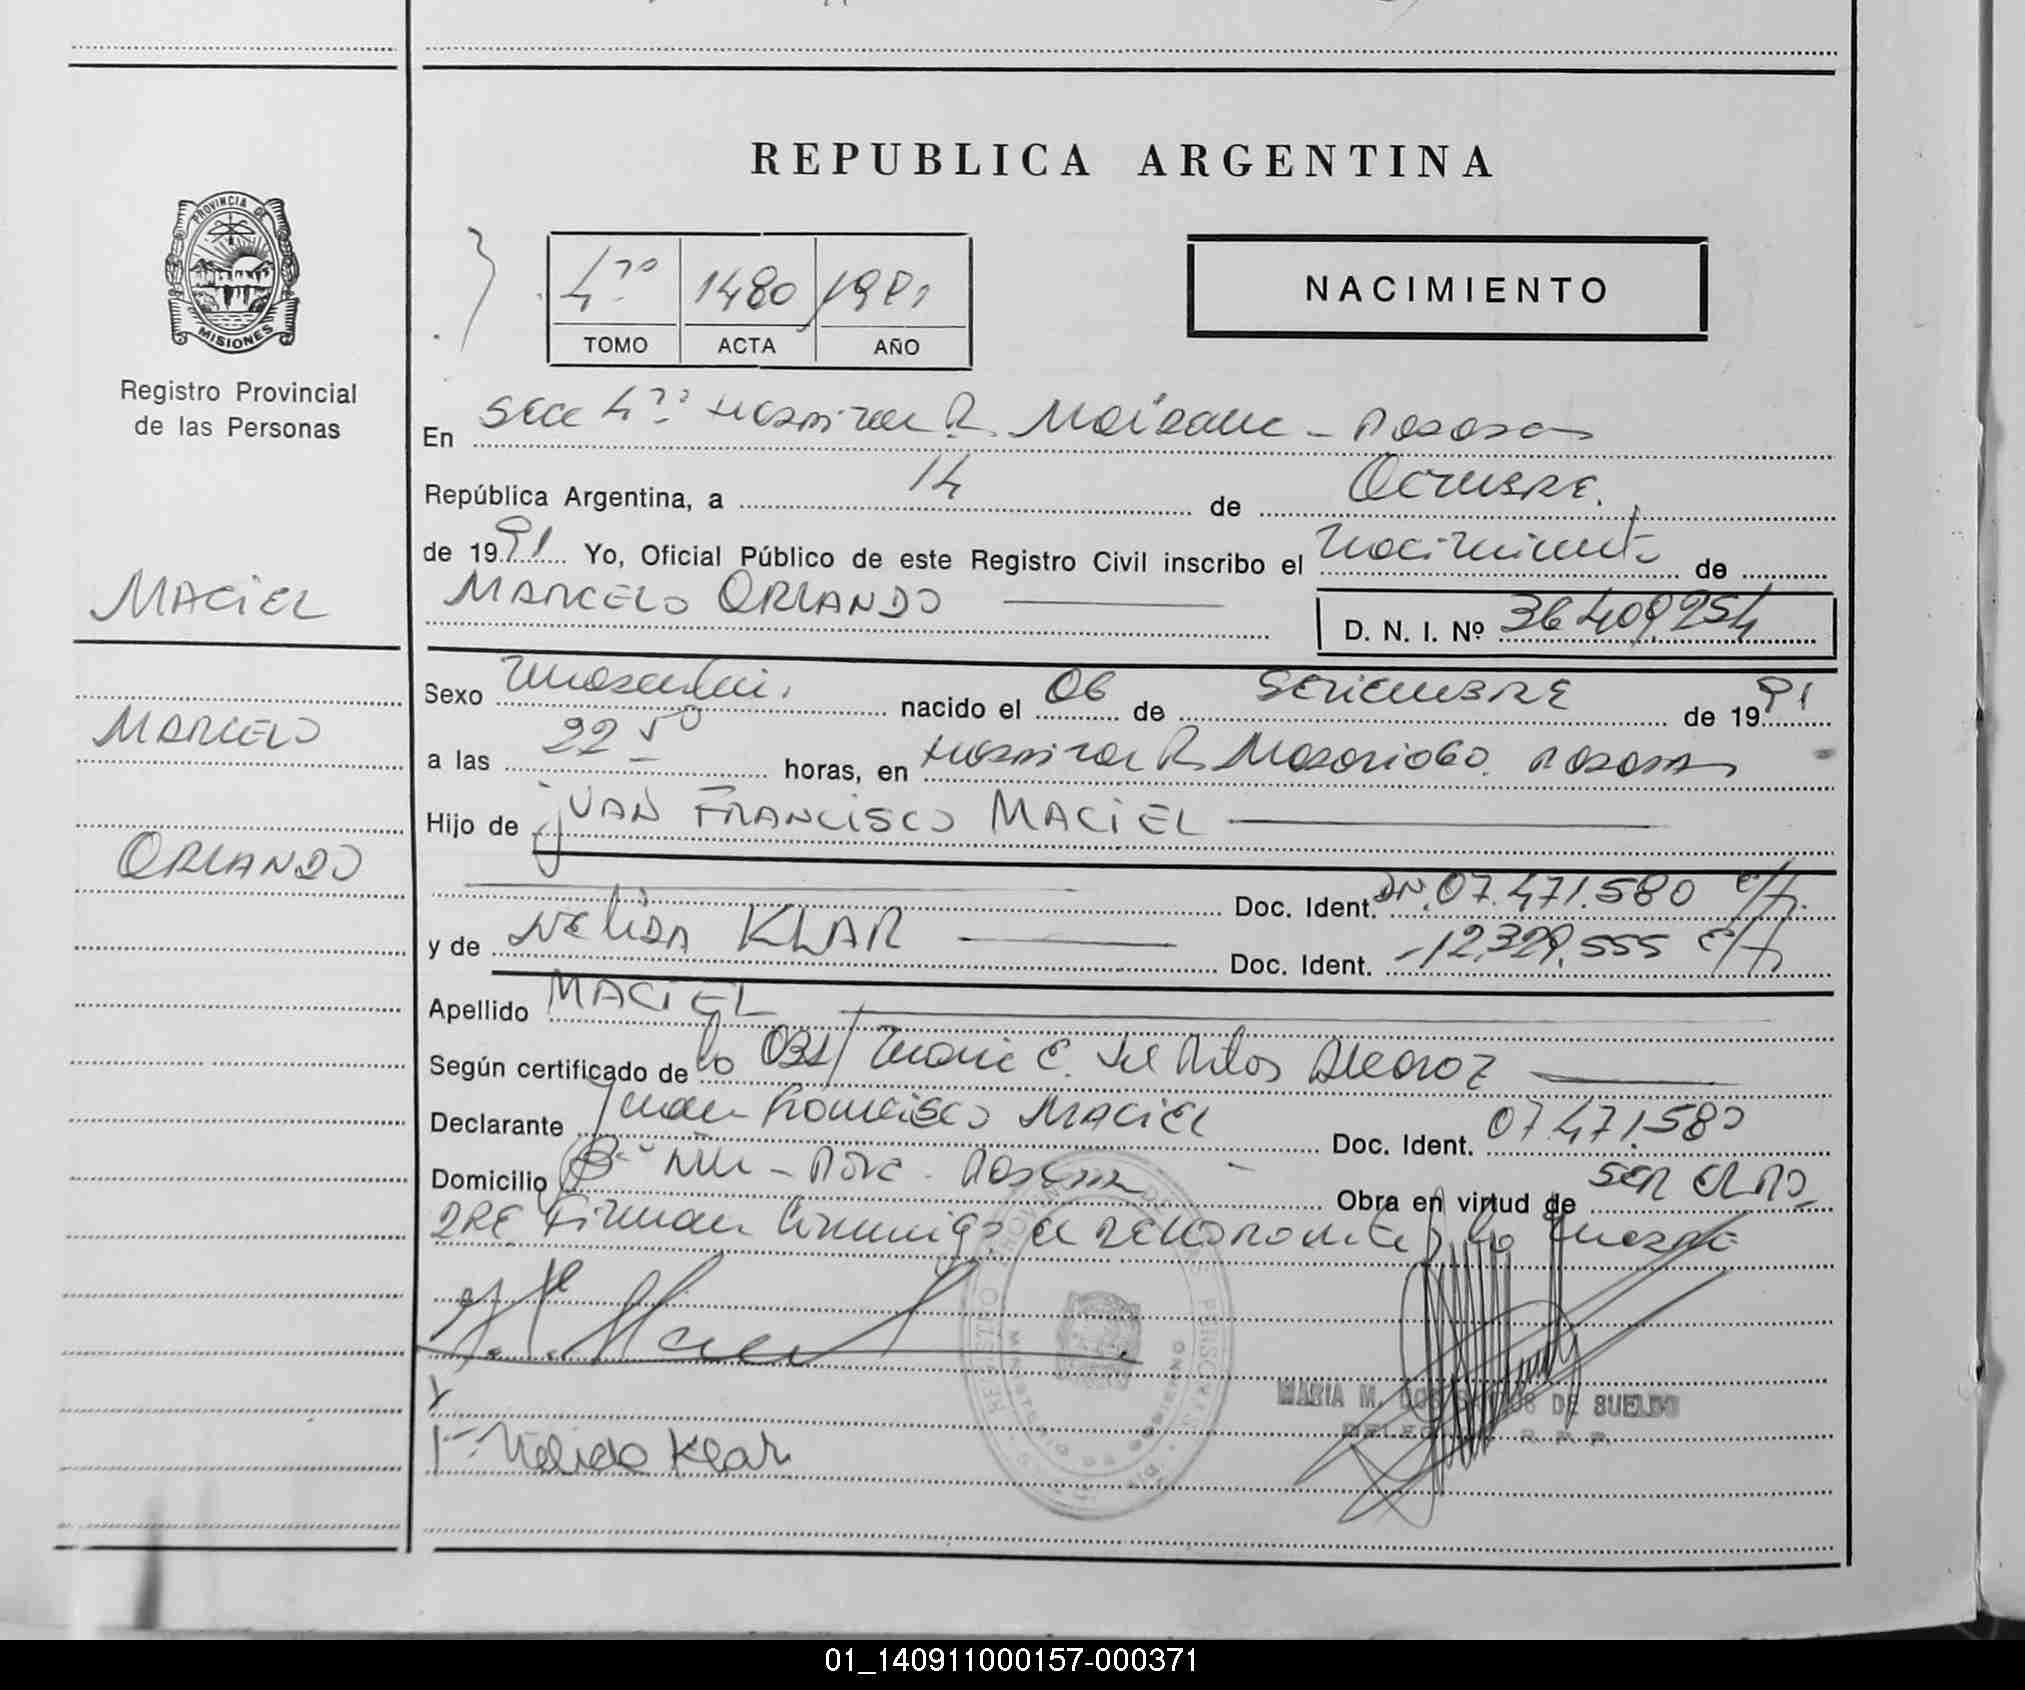 REPUBLICA ARGENTINA
PROVINCIA DE
MISIONES
Registro Provincial
de las Personas
NACIMIENTO
1480
TOMO ACTA AÑO
En Secc 4ta Hospital R. - Posadas
República Argentina, a 14 de Octubre.
de 1991 Yo, Oficial Público de este Registro Civil inscribo el nacimiento de
MARCELO ORLANDO
D. N. I. Nº 36409254
MACIEL
MARCELO
ORLANDO
Sexo masculino. nacido el 06 de SETIEMBRE de 1991
a las 22 50 horas, en Hospital R. Posadas
Hijo de JUAN FRANCISCO MACIEL
Doc. Ident. 07.471.580
y de NELIDA KLAR Doc. Ident. 12.329.555
Apellido MACIEL
Según certificado de la Obst
Declarante Juan Francisco MACIEL Doc. Ident. 07.471.580
Domicilio Posadas Obra en virtud de SER EL PA
DRE Firman conmigo el declarante y la madre
Nelida Klar
MARIA M. DOS SANTOS DE SUELDO
R. P. P.
01_140911000157-000371